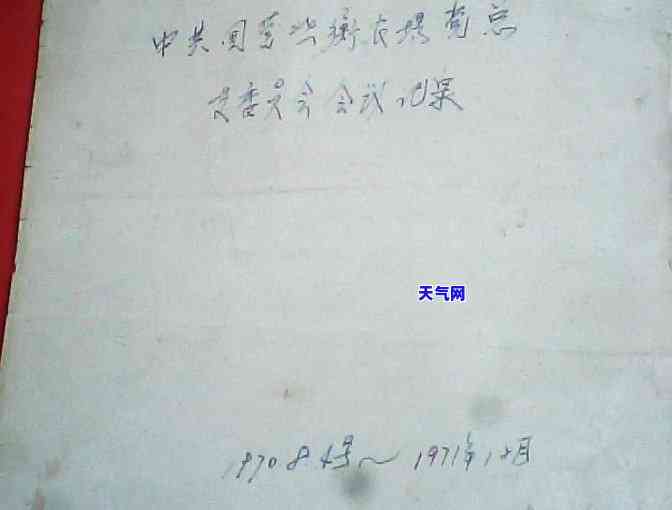 中共国营坐衡农场党总
支委员会会议记录
天气网
1970 8 4号～1971年12月